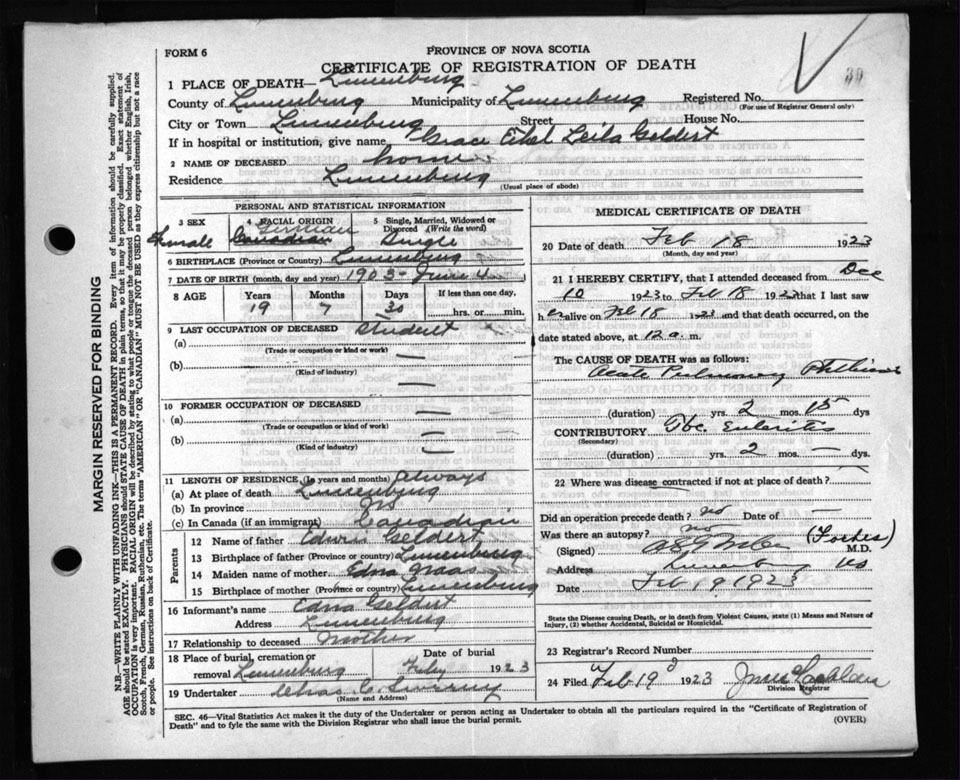 FORM 6
PROVINCE OF NOVA SCOTIA
CERTIFICATE OF REGISTRATION OF DEATH
1 PLACE OF DEATH— Lunenburg
County of Lunenburg Municipality of Lunenburg Registered No.
(For use of Registrar General only)
City or Town Lunenburg Street House No.
If in hospital or institution, give name Grace Ethel Leila Geldert
2 NAME OF DECEASED home
Residence Lunenburg
(Usual place of abode)
PERSONAL AND STATISTICAL INFORMATION
3 SEX 4 RACIAL ORIGIN 5 Single, Married, Widowed or Divorced (Write the word)
Female German Canadian Single
6 BIRTHPLACE (Province or Country) Lunenburg
7 DATE OF BIRTH (month, day and year) 1903 - June 4
8 AGE Years Months Days If less than one day,
19 7 30 hrs. or min.
9 LAST OCCUPATION OF DECEASED Student
(a)
(Trade or occupation or kind or work)
(b) —
(Kind of industry)
10 FORMER OCCUPATION OF DECEASED —
(a) —
(Trade or occupation or kind of work)
(b) —
(Kind of industry)
11 LENGTH OF RESIDENCE (In years and months) Always
(a) At place of death Lunenburg
(b) In province
(c) In Canada (if an immigrant) Canadian
Parents
12 Name of father Edwin Geldert
13 Birthplace of father (Province or country) Lunenburg
14 Maiden name of mother Edna
15 Birthplace of mother (Province or country) Lunenburg
16 Informant's name Edna Geldert
Address Lunenburg
17 Relationship to deceased Mother
18 Place of burial, cremation or removal Lunenburg Date of burial 1923
19 Undertaker Chas C
(Name and Address)
MEDICAL CERTIFICATE OF DEATH
20 Date of death Feb 18 1923
(Month, day and year)
21 I HEREBY CERTIFY, that I attended deceased from Dec
10 1923 to Feb 18 1923 that I last saw
h er alive on Feb 18 1923 and that death occurred, on
date stated above, at 12 a. m.
The CAUSE OF DEATH was as follows:
Acute Pulmonary Phthisis
(duration) — yrs. 2 mos. 15 dys
CONTRIBUTORY Tbc Enteritis
(Secondary)
(duration) — yrs. 2 mos. — dys.
22 Where was disease contracted if not at place of death?
Did an operation precede death? no Date of —
Was there an autopsy? no (Forbes)
(Signed) M.D.
Address Lunenburg NS
Date Feb 19 1923
State the Disease causing Death, or in death from Violent Causes, state (1) Means and Nature of Injury, (2) whether Accidental, Suicidal or Homicidal.
23 Registrar's Record Number
24 Filed Feb 19 1923
Division Registrar
SEC. 46—Vital Statistics Act makes it the duty of the Undertaker or person acting as Undertaker to obtain all the particulars required in the "Certificate of Registration of
Death" and to fyle the same with the Division Registrar who shall issue the burial permit.
(OVER)
MARGIN RESERVED FOR BINDING
N.B.—WRITE PLAINLY WITH UNFADING INK—THIS IS A PERMANENT RECORD. Every item of information should be carefully supplied.
AGE should be stated EXACTLY. PHYSICIANS should STATE CAUSE OF DEATH in plain terms, so that it may be properly classified. Exact statement of
OCCUPATION is very important. RACIAL ORIGIN will be described by stating to what people or tongue the deceased person belonged whether English, Irish,
Scotch, French, German, Russian, Ruthenian, etc. The terms "AMERICAN" OR "CANADIAN" MUST NOT BE USED as they express citizenship but not a race
or people. See instructions on back of Certificate.